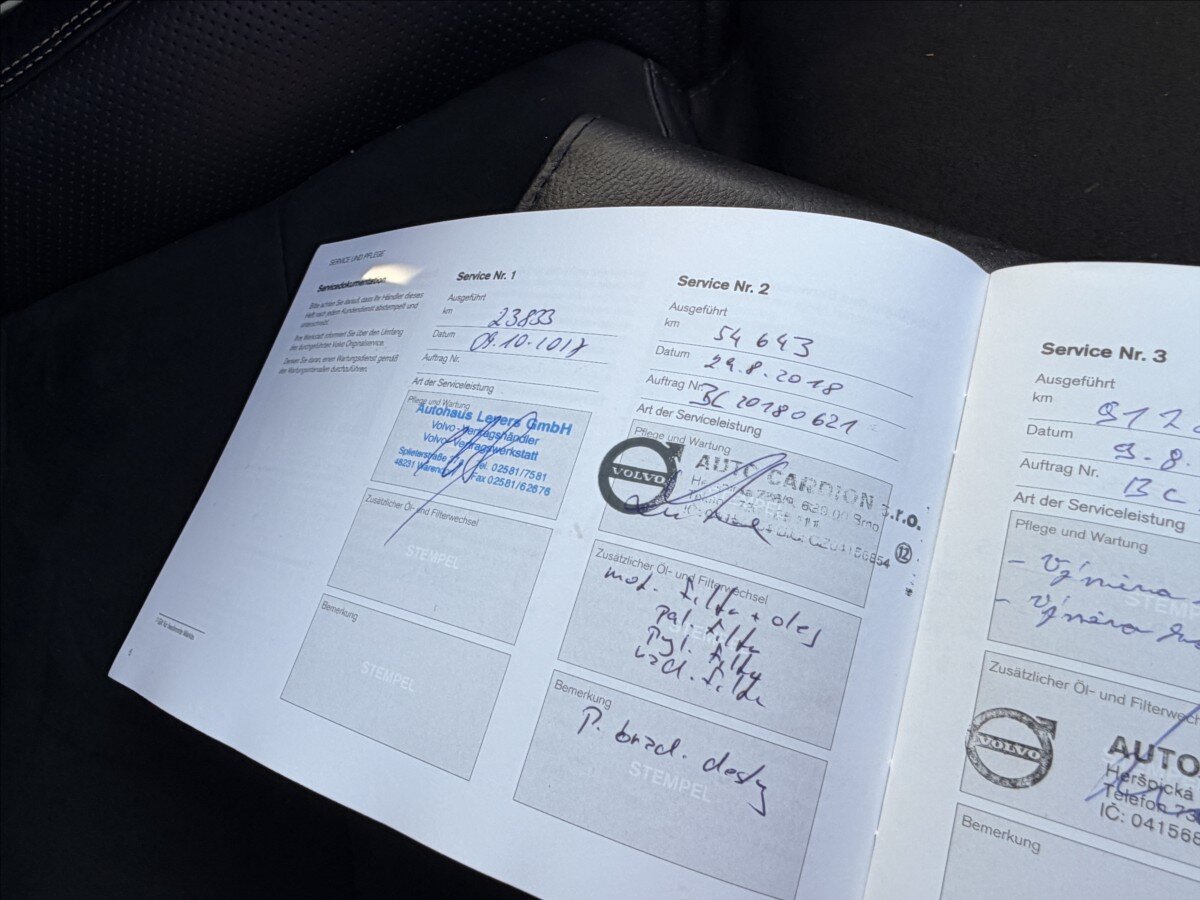 SERVICE UND PFLEGE
Servicedokumentation
Bitte achten Sie darauf, dass Ihr Händler dieses
Heft nach jedem Kundendienst abstempelt und
unterschreibt.
Ihre Werkstatt informiert Sie über den Umfang
des durchgeführten Volvo Originalservice.
Denken Sie daran, einen Wartungsdienst gemäß
den Wartungsintervallen durchzuführen.
6
Service Nr. 1
Ausgeführt
km 23833
Datum 09.10.2017
Auftrag Nr.
Art der Serviceleistung
Pflege und Wartung
Autohaus GmbH
Volvo-Vertragshändler
Volvo-Vertragswerkstatt
Tel. 02581/7581
48231 Fax 02581/62876
Zusätzlicher Öl- und Filterwechsel
STEMPEL
Bemerkung
STEMPEL
Service Nr. 2
Ausgeführt
km 54643
Datum 29.8.2018
Auftrag Nr. BC20180621
Art der Serviceleistung
Pflege und Wartung
VOLVO
AUTO CARDION s.r.o.
Brno
12
Zusätzlicher Öl- und Filterwechsel
mot. filtr + olej
pal. filtr
pyl. filtr
vzd. filtr
Bemerkung
P. brzd. desky
STEMPEL
Service Nr. 3
Ausgeführt
km
Datum 9.8.
Auftrag Nr. BC
Art der Serviceleistung
Pflege und Wartung
- Výměna
- Výměna
STEMPE
Zusätzlicher Öl- und Filterwech
VOLVO
AUTO
Heršpická
Telefon 73
IČ: 04156
Bemerkung